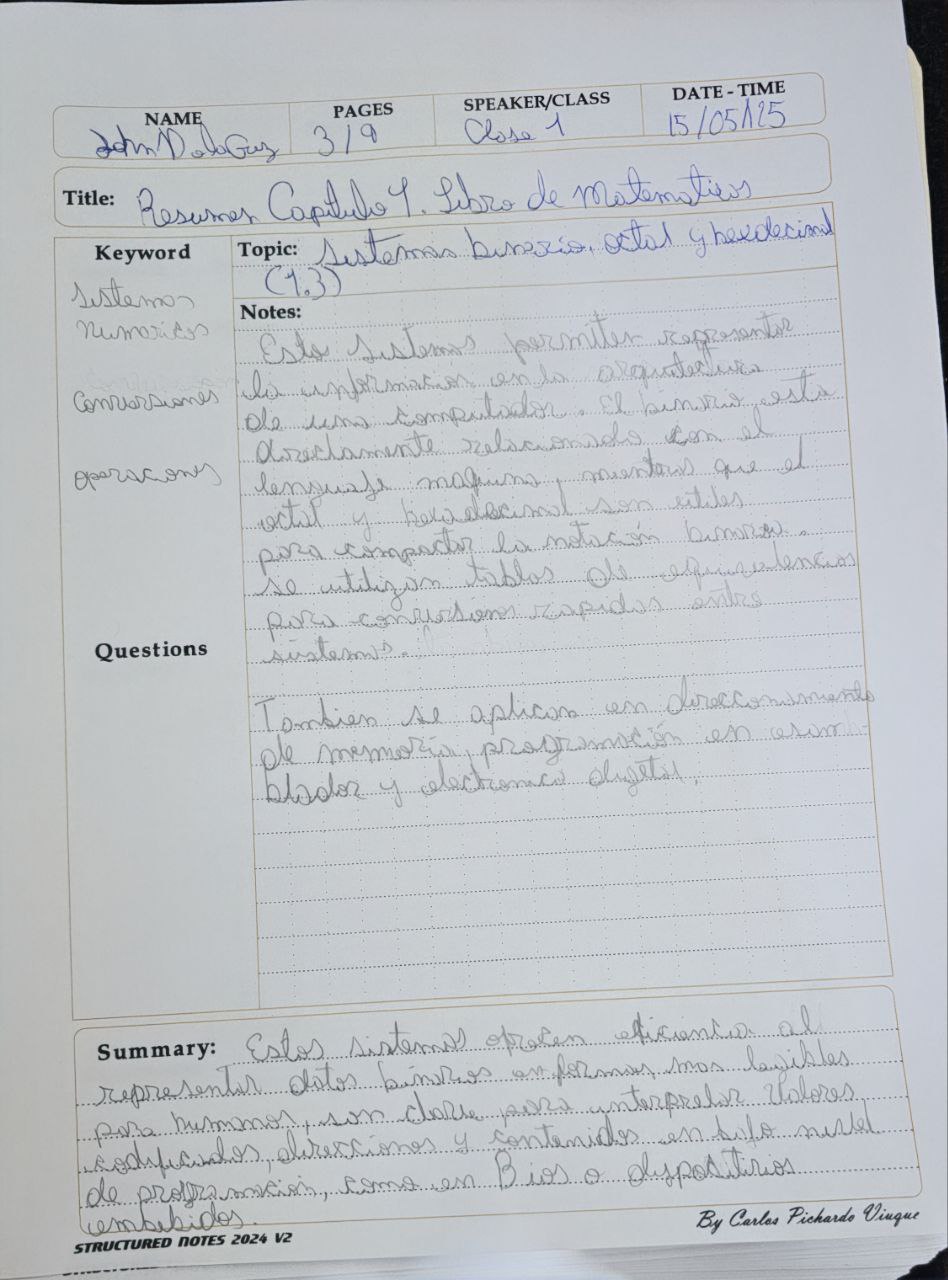 NAME PAGES SPEAKER/CLASS DATE - TIME
John DelaCruz 3/9 Clase 1 15/05/25
Title: Resumen Capitulo 1. Libro de Matematicas
Keyword
Sistemas
Numericos
Conversiones
operaciones
Questions
Topic: Sistemas binario, octal y hexadecimal
(1.3)
Notes:
Esto sistemas permiten representar
la informacion en la arquitectura
de una computador. El binario esta
directamente relacionado con el
lenguaje maquina, mientras que el
octal y hexadecimal son utiles
para compactar la notación binaria.
se utilizan tablas de equivalencias
para conversiones rapidas entre
sistemas.
Tambien se aplican en direccionamiento
de memoria, programación en esam-
blador y electronica digital.
Summary: Estos sistemas ofrecen eficiencia al
representar datos binarios en formas mas legibles
para humanos, son clave para interpretar valores
codificados, direcciones y contenidos en bajo nivel
de programación, como en Bios o dispositivos
embebidos.
STRUCTURED NOTES 2024 V2
By Carlos Pichardo Viuque